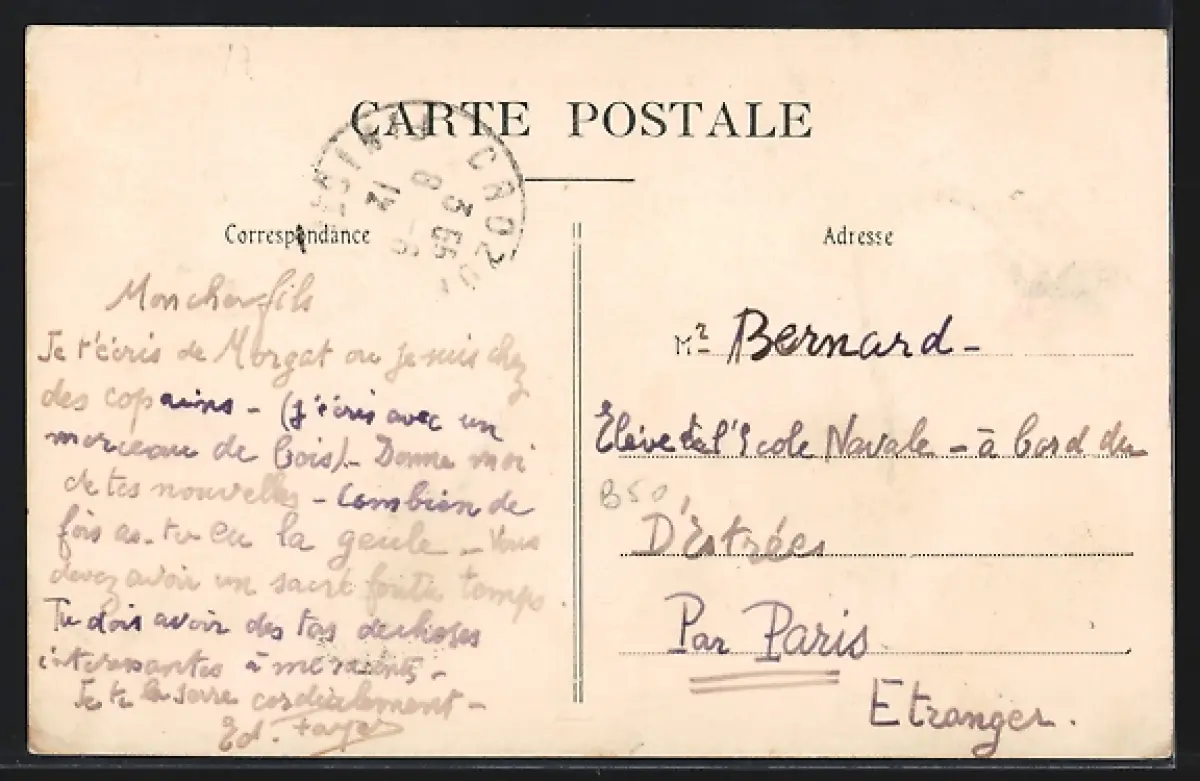 CARTE POSTALE
CROZON
FINISTÈRE
8 - 6
3 55
14
Correspondance
Adresse
Mon cher fils
Je t'écris de Morgat ou je suis chez
des copains - (j'écris avec un
morceau de bois). - Donne moi
de tes nouvelles - Combien de
fois as-tu eu la gueule - Vous
devez avoir un sacré foutu temps.
Tu dois avoir des tas de choses
interessantes à me raconter -
Je te la serre cordialement -
Ed.
Mr Bernard -
Elève à l'Ecole Navale - à bord du
B50
D'Estrées
Par Paris
Etranger.